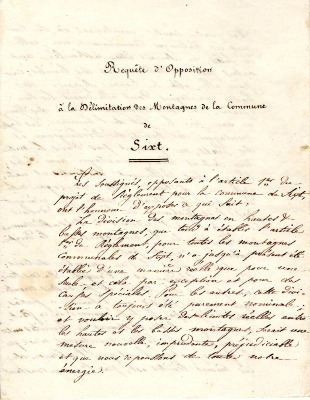 Requête d'Opposition
à la Délimitation des Montagnes de la Commune
de
Sixt.
Les soussignés, opposants à l'article 1er du
projet de Règlement pour la commune de Sixt,
ont l'honneur d'exposer ce qui suit:
La division des montagnes en hautes &
basses montagnes, que tend à établir l'article
1er du Règlement, pour toutes les montagnes
communales de Sixt, n'a jusqu'à présent été
établie d'une manière réelle que pour une
seule, et cela par exception et pour des
causes spéciales. Pour les autres, cette divi-
sion a toujours été purement nominale;
et vouloir y poser des limites réelles entre
les hautes et les basses montagnes, serait une
mesure nouvelle, imprudente, préjudiciable
et que nous repoussons de toute notre
énergie.